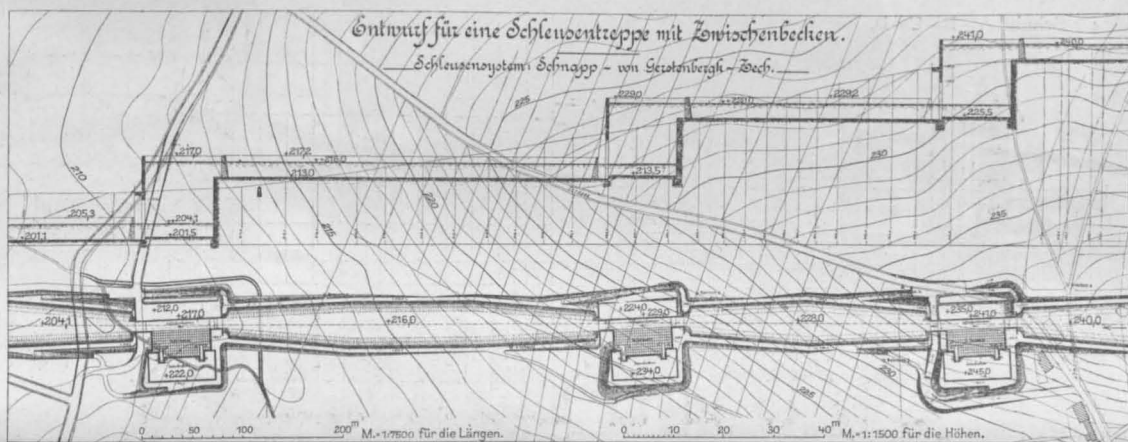 Entwurf für eine Schleusentreppe mit Zwischenbecken.
Schleusensystem: Schnapp - von Gerstenbergk - Zech.
+241,0
+240,0
225
+229,0
+229,2
+225,5
230
+217,0
+217,2
+216,0
+213,0
+213,5
210
220
235
205,3
+204,1
+201,1
+201,5
215
+212,0
+217,0
+204,1
+216,0
+222,0
+224,0
+229,0
+228,0
+234,0
+235,0
+241,0
+240,0
+245,0
230
225
0 50 100 200 m
M.=1/7500 für die Längen.
0 10 20 30 40 m
M.=1:1500 für die Höhen.